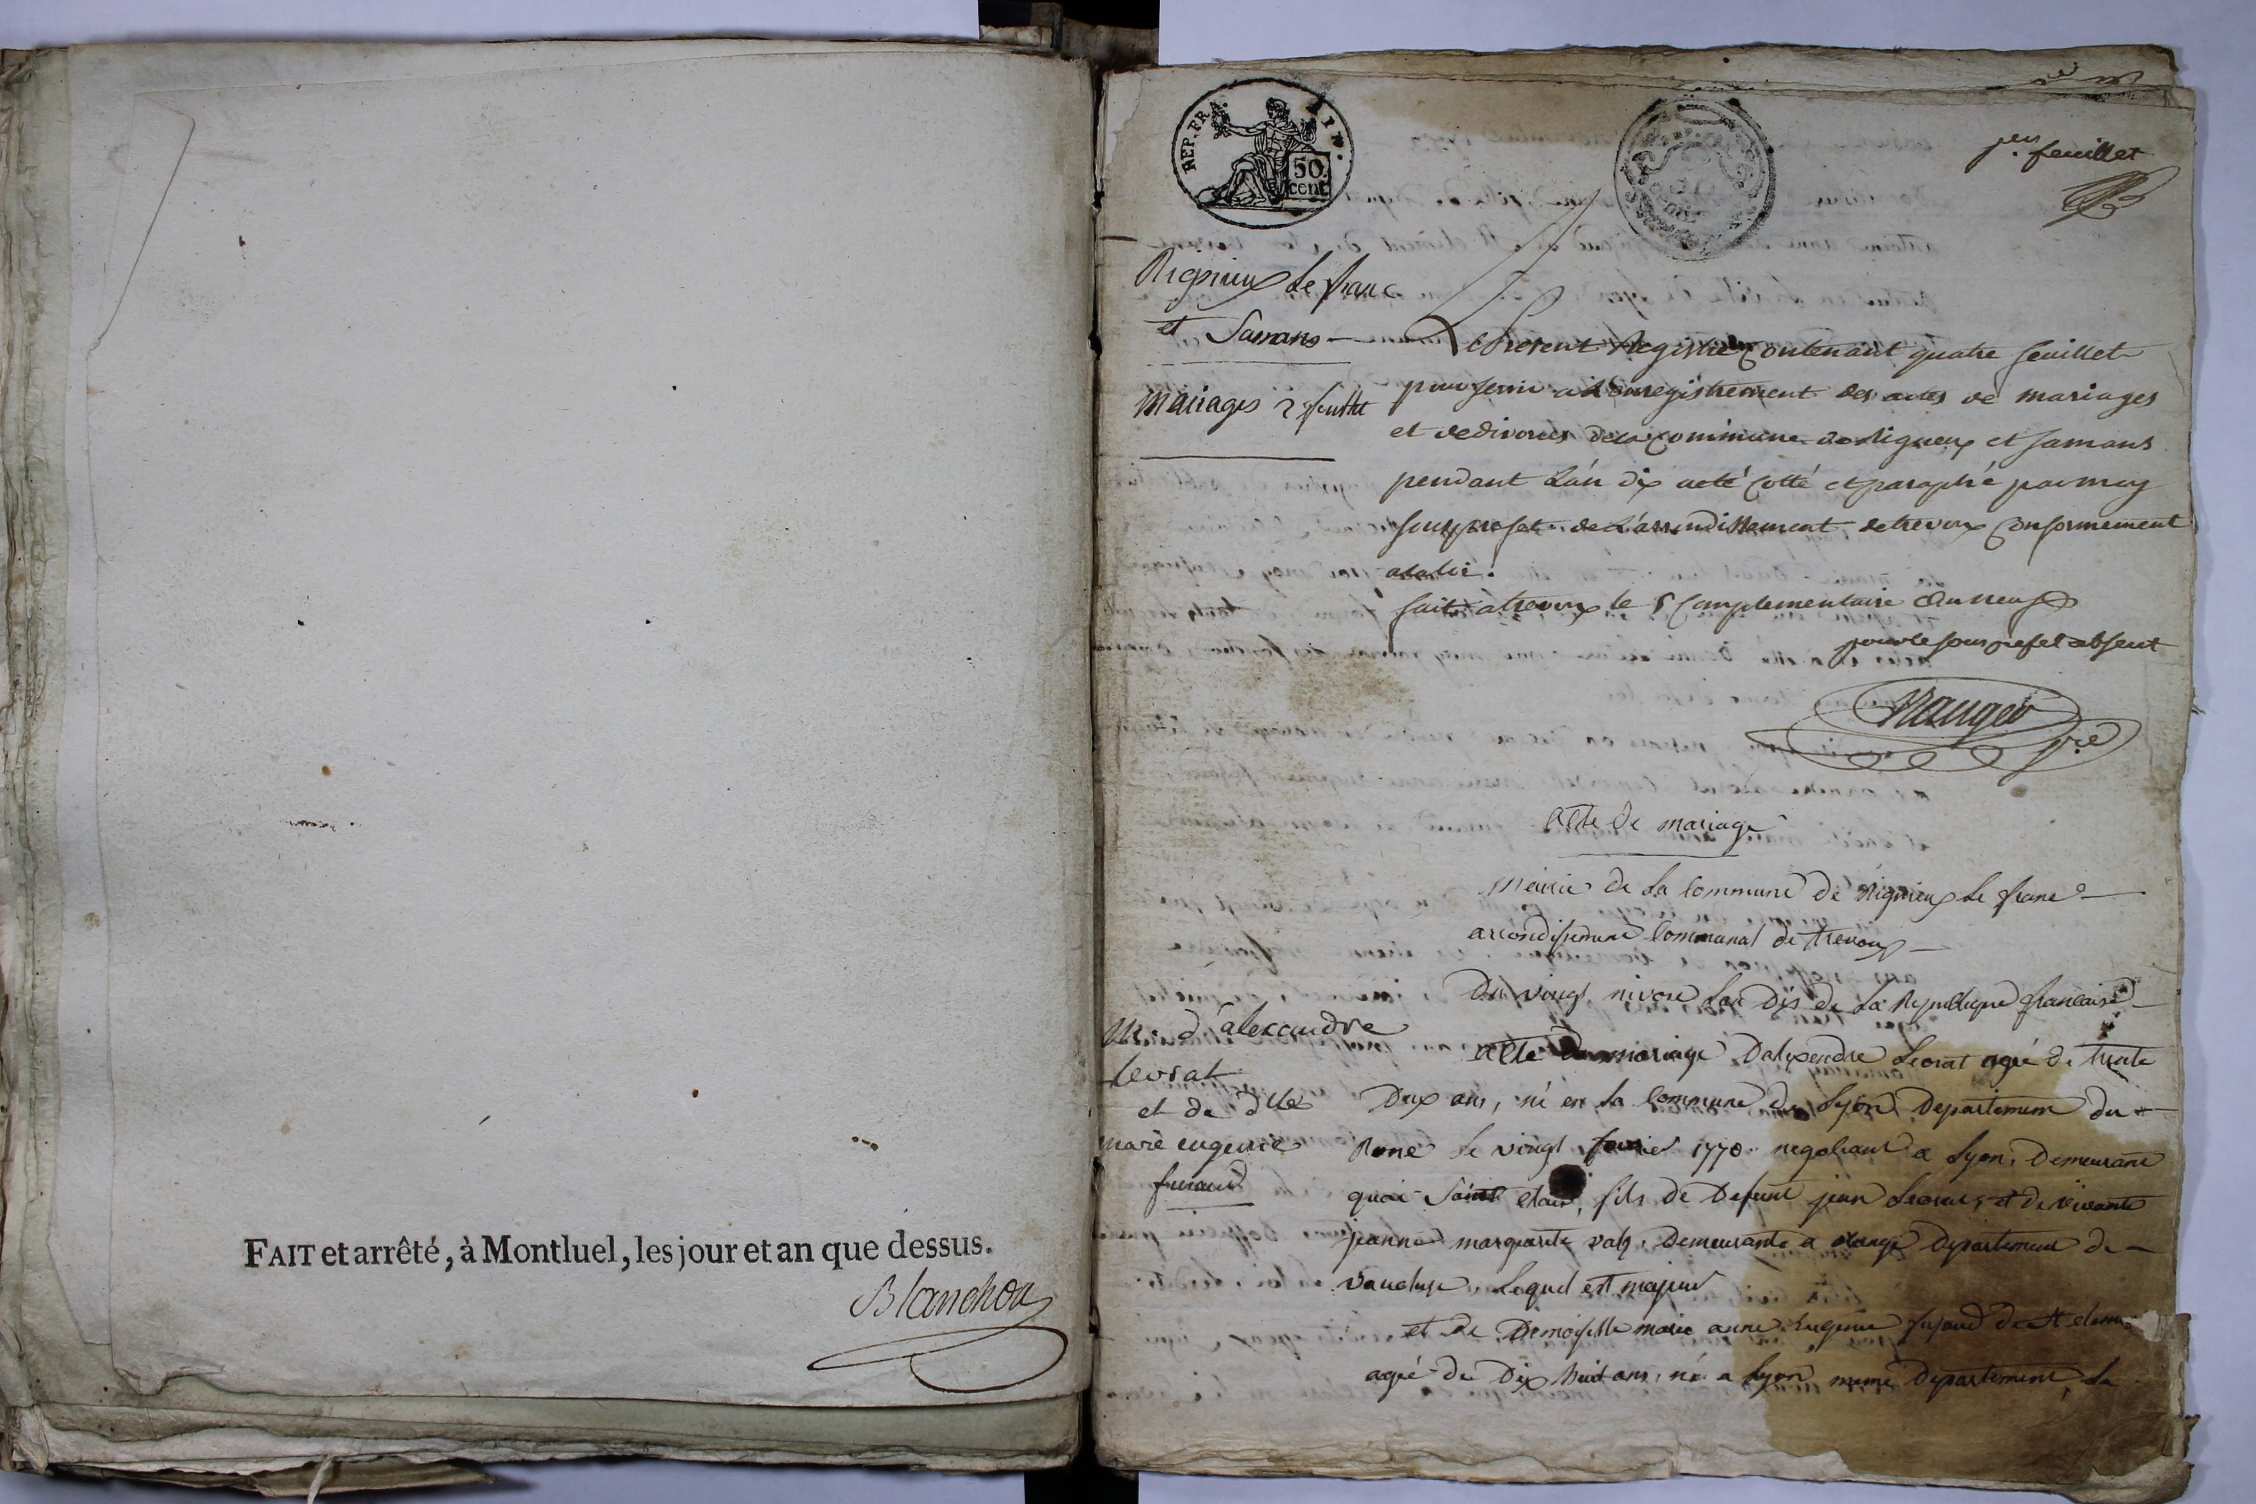 FAIT et arrêté, à Montluel, les jour et an que dessus.
Blanchon
REP. FR.
50
cent
per feuillet
Rignieux Le franc
et Samans
mariages 2 feuillet
Le Present Registre Contenant quatre feuillet
pour servir a L'enregistrement des actes de mariages
et de divorces de la Commune de Rigneux et Samans
pendant L'an dix acté Cotté et paraphé par moy
sous prefet de L'arrondissement de trevoux Conformement
a la loi.
fait a trevoux le 5 Complementaire an neuf
pour le sous prefet absent
acte de mariage
Mairie de La Commune de Rignieux Le franc
arrondissement Communal de trevoux
Du vingt nivose L'an Dix de La Republique francaise
M. d'alexandre
levrat
et de dlle
marie eugenie
acte de mariage D'alexandre Levrat agé de trente
Deux ans, né en la Commune de Lyon Departement du
Rone le vingt fevrier 1770 negotiant a Lyon, Demeurant
quai Saint clair, fils de Defunt jean Levrat, et de vivante
jeanne marguerite Demeurante a orange Departement de
vaucluse Lequel est majeur
et de Demoiselle marie anne Eugenie de St
agé de Dix huit ans, né a Lyon meme Departement, Le